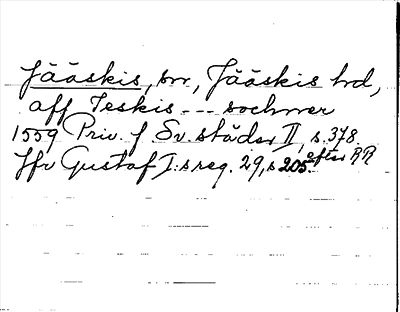 Jääskis, sn, Jääskis hd,
aff Jeskis --- sochner
1559 Priv. f Sv. städer II, s. 378.
Jfr Gustaf I:s reg. 29, s 205. efter RR